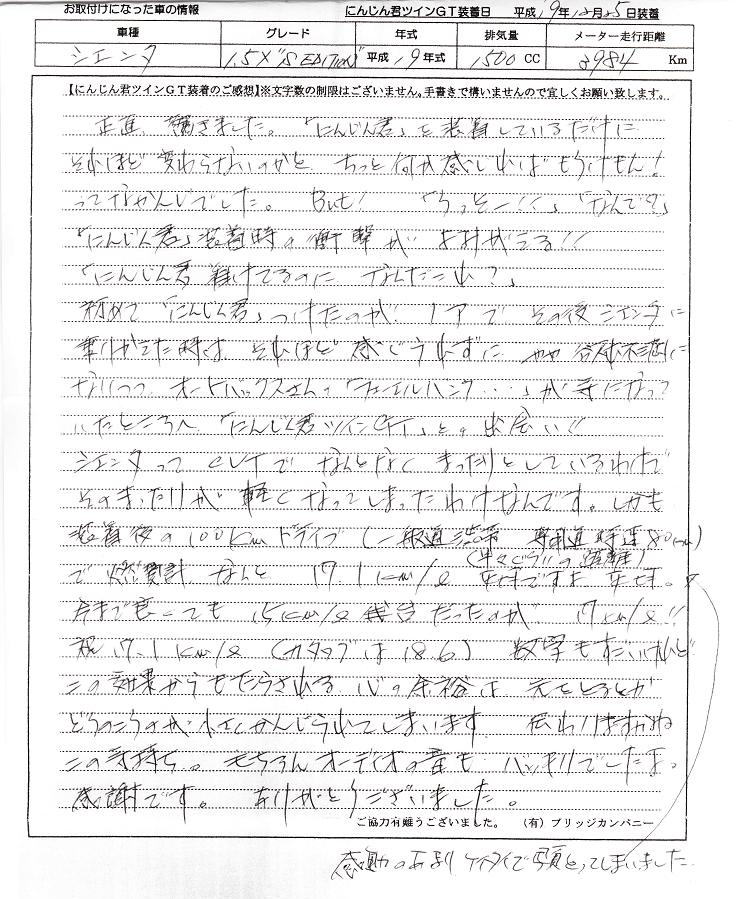 お取付けになった車の情報 にんじん君ツインGT装着日 平成19年12月25日装着
車種 グレード 年式 排気量 メーター走行距離
シエンタ 1.5X"S EDITION" 平成19年式 1500CC 2984Km
【にんじん君ツインGT装着のご感想】※文字数の制限はございません。手書きで構いませんので宜しくお願い致します。
正直、驚きました。「にんじん君」を装着しているだけに
それほど変わらないのかと ちっと何か感じればもうけもん!
ってなかんじでした。But! 「うっそー!!」「なんで?」
「にんじん君」装着時の衝撃がよみがえる!!
「にんじん君着けてるのに なんだこれ?」
初めて「にんじん君」つけたのが で その後シエンタに
乗りかえた時は それほど感じられずに やや不満に
なりつつ オートバックスさんの「フューエルバンク・・・」が気になって
いたところへ「にんじん君ツインGT」との出会い!!
シエンタってCVTで なんとなくまったりとしているわけで
そのまったりが軽くなってしまったわけなんです。しかも
装着後の100kmドライブ(一般道渋滞 専用道時速80km)
(半々ぐらいの距離)
で燃費計 なんと 17.1km/ℓ ですよ 。
今まで良くても 15km/ℓ 台だったのが 17km/ℓ!!
祝17.1km/ℓ(カタログは18.6) 数字もすごいけれど
この効果からもたらされる 心の余裕は 元をとるとか
どうのこうのが小さくかんじられてしまいます 伝わりますかね
この気持ち。もちろんオーディオの音も ハッキリでしたよ。
感謝です。 ありがとうございました。
ご協力有難うございました。 (有)ブリッジカンパニー
感動のあまり ケイタイで写真とってしまいました